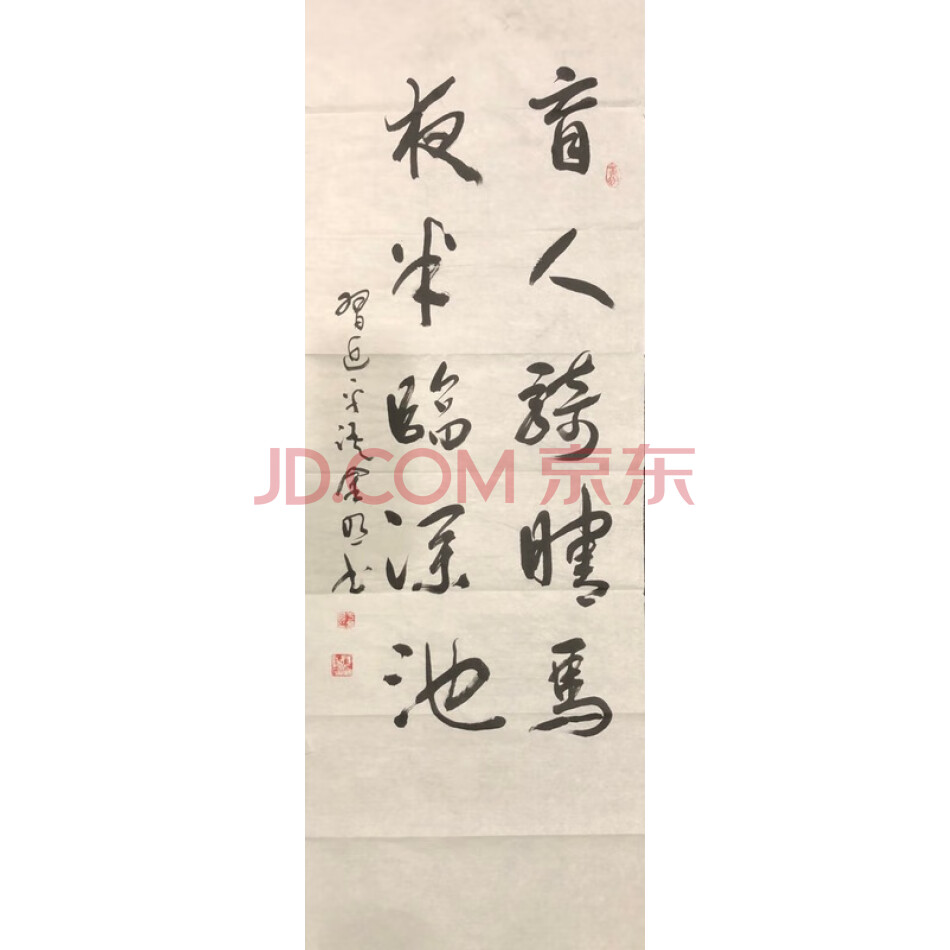 盲人騎瞎馬
夜半臨深池
習近平语金明书
JD.COM 京东